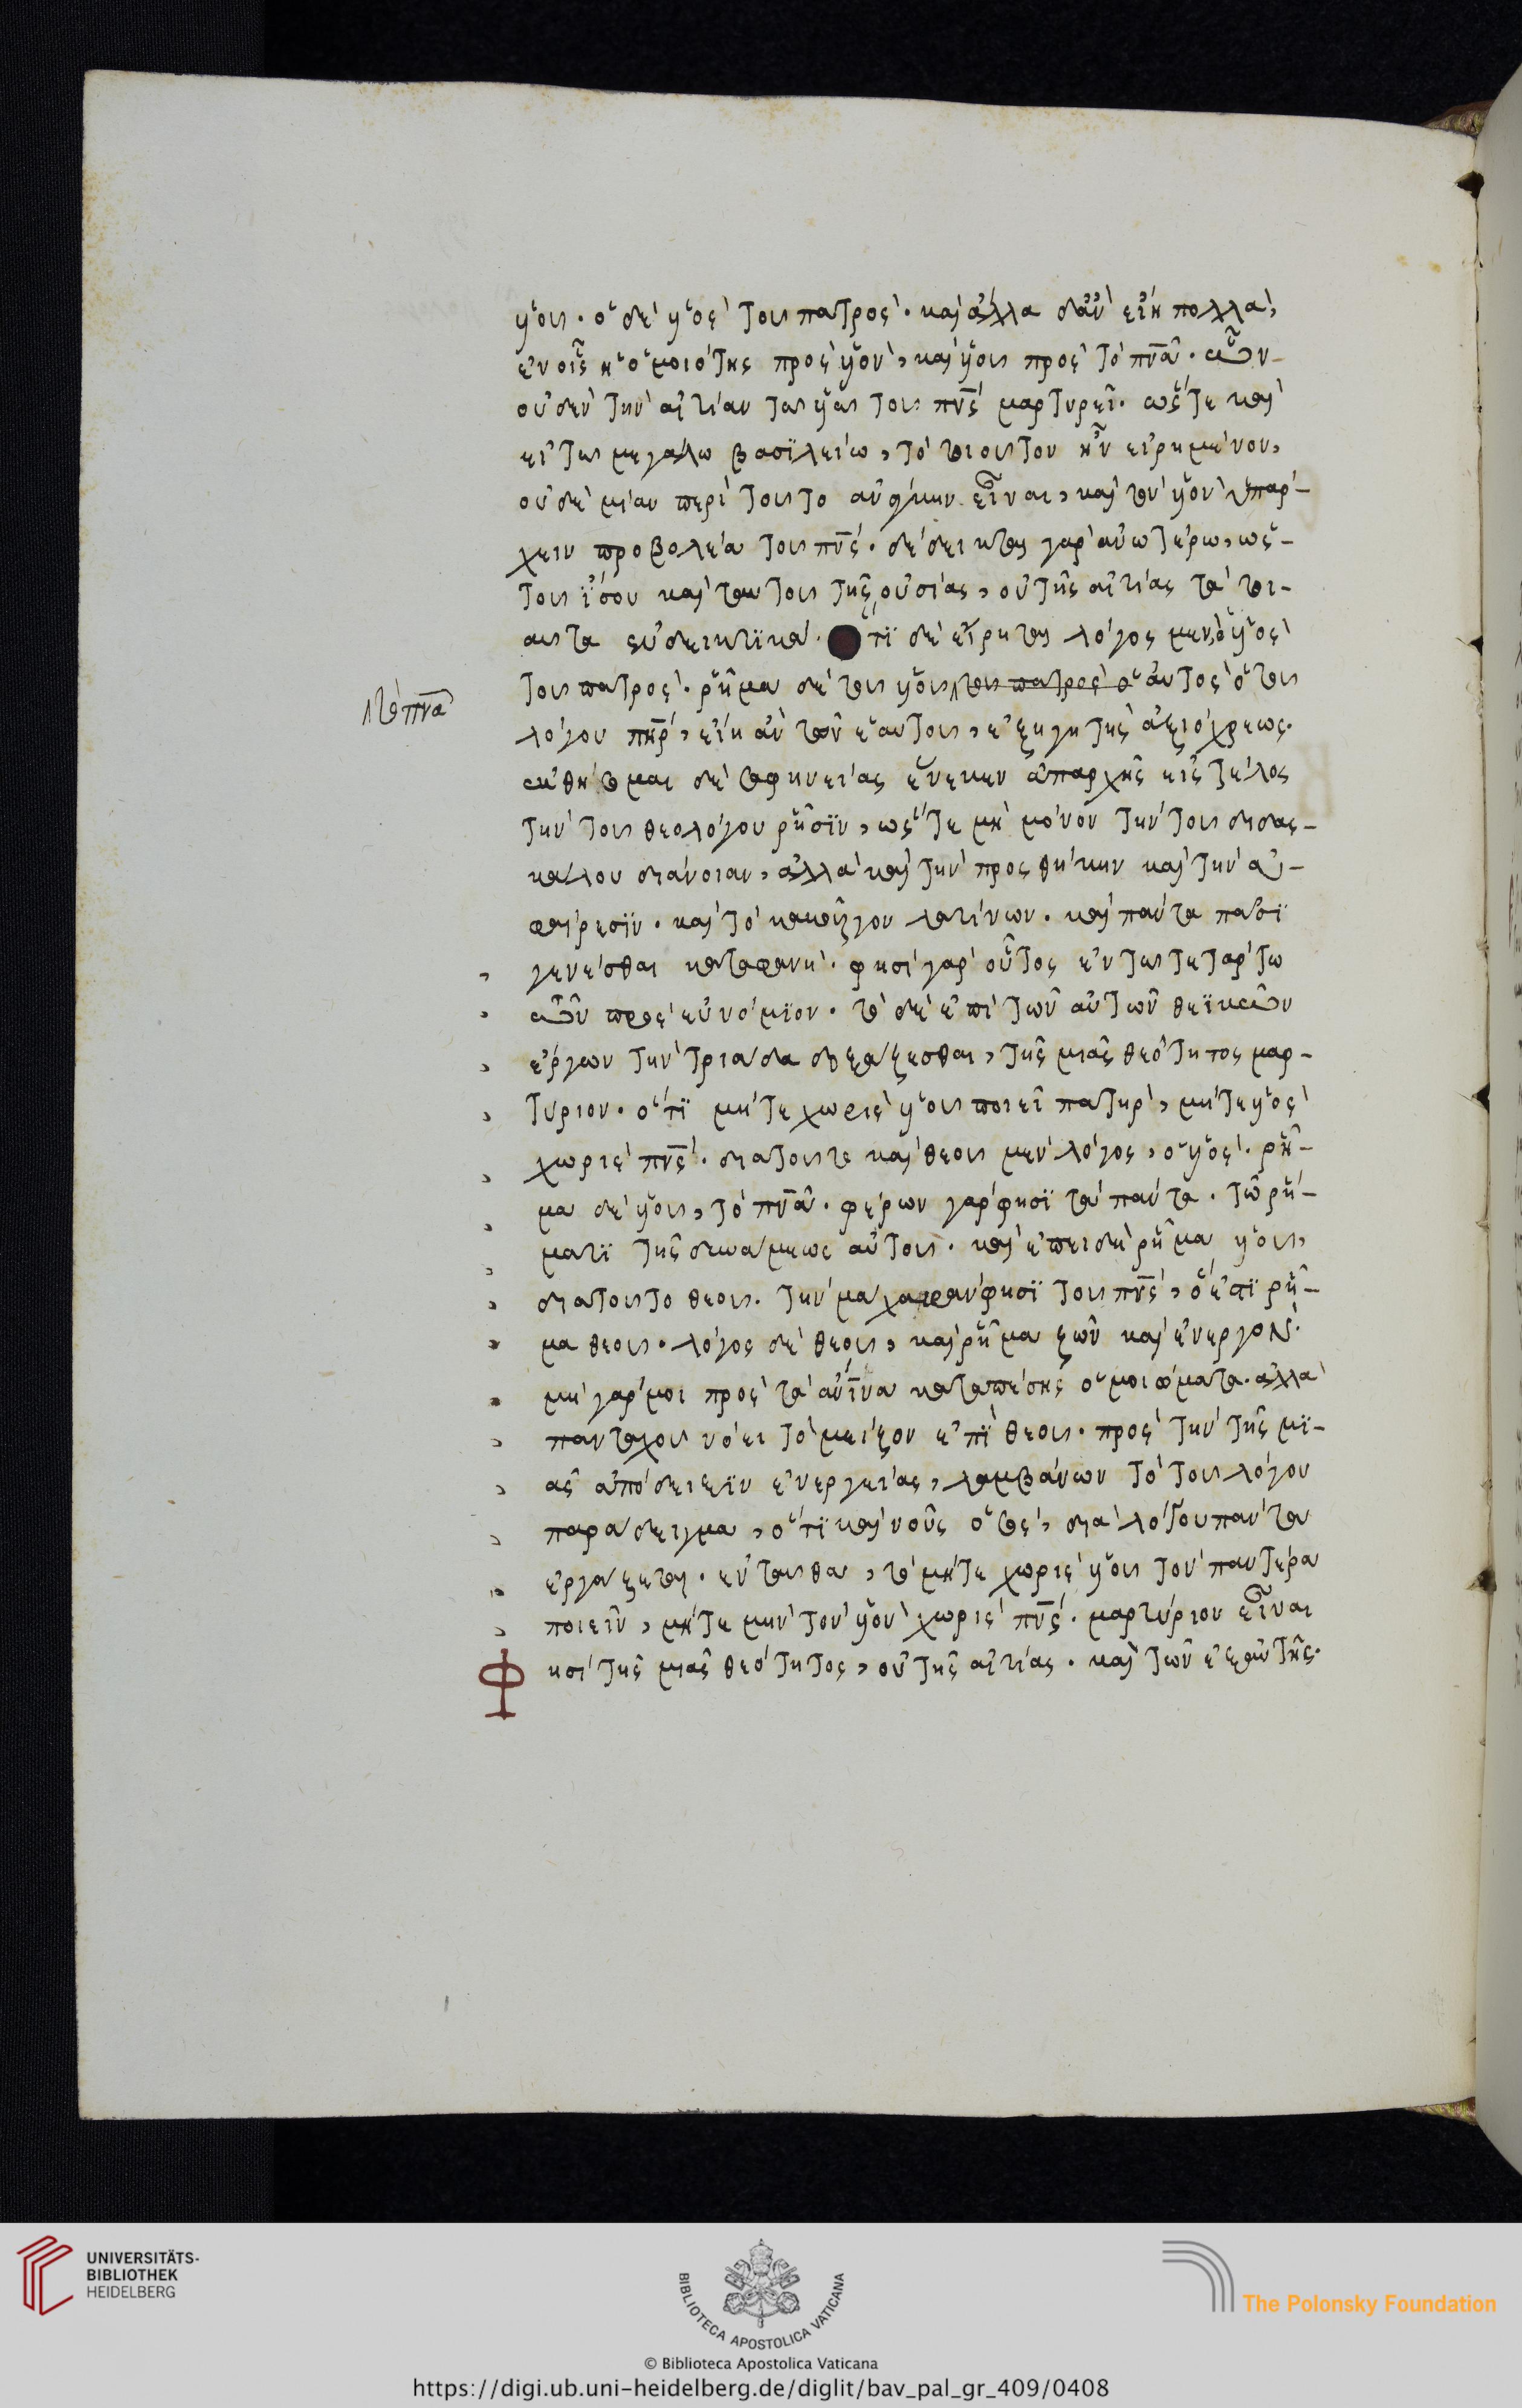 ὑοῦ. ὁ δὲ ὑὸς τοῦ πατρὸς. καὶ ἄλλα δ' ἂν εἴη πολλὰ,
ἐν οἷς ἡ ὁμοιότης πρὸς ὑὸν, καὶ ὑοῦ πρὸς τὸ πν̅α. ὧν
οὐδὲν τὴν αἰτίαν τῶ ὑῶ τοῦ πν̅ς μαρτυρεῖ. ὥστε καὶ
εἰ τῶ μεγάλω βασιλείω, τὸ τοιοῦτον ἦν εἰρημένον,
οὐδεμίαν περὶ τούτο ἀνάγκην εἶναι, καὶ τὸν ὑὸν ὑπάρ-
χειν προβολέα τοῦ πν̅ς. δέδεικται γὰρ ἀνωτέρω, ὡς
τοῦ ἴσου καὶ ταυτοῦ τῆς οὐσίας, οὐ τῆς αἰτίας τὰ τοι-
αῦτα ἐνδεικτικά. ὅτι δὲ εἴρηται λόγος μὲν ὁ ὑὸς
τοῦ πατρὸς. ῥῆμα δὲ τοῦ ὑοῦ τοῦ πατρὸς ὁ αὐτὸς ὁ τοῦ
τὸ πν̅α
λόγου πη̅ρ, εἴη ἂν τῶν ἑαυτοῦ, ἐξηγητὴς ἀξιόχρεως.
ἐκθήσομαι δὲ σαφηνείας ἕνεκεν ἀπαρχῆς εἰς τέλος
τὴν τοῦ θεολόγου ῥῆσιν, ὥστε μὴ μόνον τὴν τοῦ διδας-
κάλου διάνοιαν, ἀλλὰ καὶ τὴν προσθήκην καὶ τὴν ἀ-
φαίρεσιν. καὶ τὸ κακοῦργον λατίνων. καὶ πάντα πᾶσι
γενέσθαι καταφανῆ. φησὶ γὰρ οὗτος ἐν τῶ τετάρτω
τῶν πρὸς εὐνόμιον. τὸ δὲ ἐπὶ τῶν αὐτῶν θεϊκῶν
ἔργων τὴν τριάδα δοξάζεσθαι, τῆς μιᾶς θεότητος μαρ-
τύριον. ὅτι μήτε χωρὶς ὑοῦ ποιεῖ πατὴρ, μήτε ὑὸς
χωρὶς πν̅ς. διατοῦτο καὶ θεοῦ μὲν λόγος, ὁ ὑὸς. ῥῆ-
μα δὲ ὑοῦ, τὸ πν̅α. φέρων γάρ φησι τὰ πάντα. τῶ ῥή-
ματι τῆς δυνάμεως αὐτοῦ. καὶ ἐπειδὴ ῥῆμα ὑοῦ,
διατοῦτο θεοῦ. τὴν μάχαιραν φησὶ τοῦ πν̅ς, ὅ ἐστι ῥῆ-
μα θεοῦ. λόγος δὲ θεοῦ, καὶ ῥῆμα ζῶν καὶ ἐνεργόν.
μὴ γάρ μοι πρὸς τὰ ἀν̅ινα καταπέσης ὁμοιώματα. ἀλλὰ
πανταχοῦ νόει τὸ μεῖζον ἐπὶ θεοῦ. πρὸς τὴν τῆς μι-
ᾶς ἀπόδειξιν ἐνεργείας, λαμβάνων τὸ τοῦ λόγου
παράδειγμα, ὅτι καὶ νοῦς ὁ θς, διὰ λόγου πάντα
ἐργάζεται. ἐνταῦθα, τὸ μήτε χωρὶς ὑοῦ τὸν παντέρα
ποιεῖν, μήτε μὴν τὸν ὑὸν χωρὶς πν̅ς. μαρτύριον εἶναι
Φησὶ τῆς μιᾶς θεότητος, οὐ τῆς αἰτίας. καὶ τῶν ἐξ αὐτῆς.
UNIVERSITÄTS-
BIBLIOTHEK
HEIDELBERG
BIBLIOTECA APOSTOLICA VATICANA
The Polonsky Foundation
© Biblioteca Apostolica Vaticana
https://digi.ub.uni-heidelberg.de/diglit/bav_pal_gr_409/0408